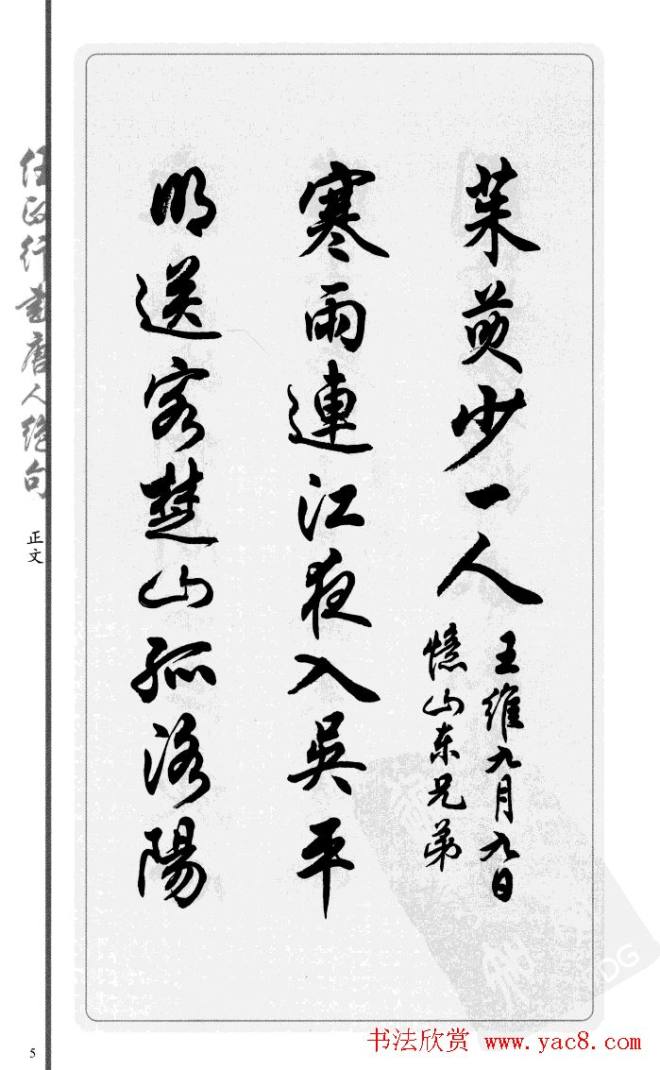 茱萸少一人
王維九月九日
憶山东兄弟
寒雨連江夜入吳平
明送客楚山孤洛陽
任政行書唐人绝句
正文
5
书法欣赏 www.yac8.com
DG